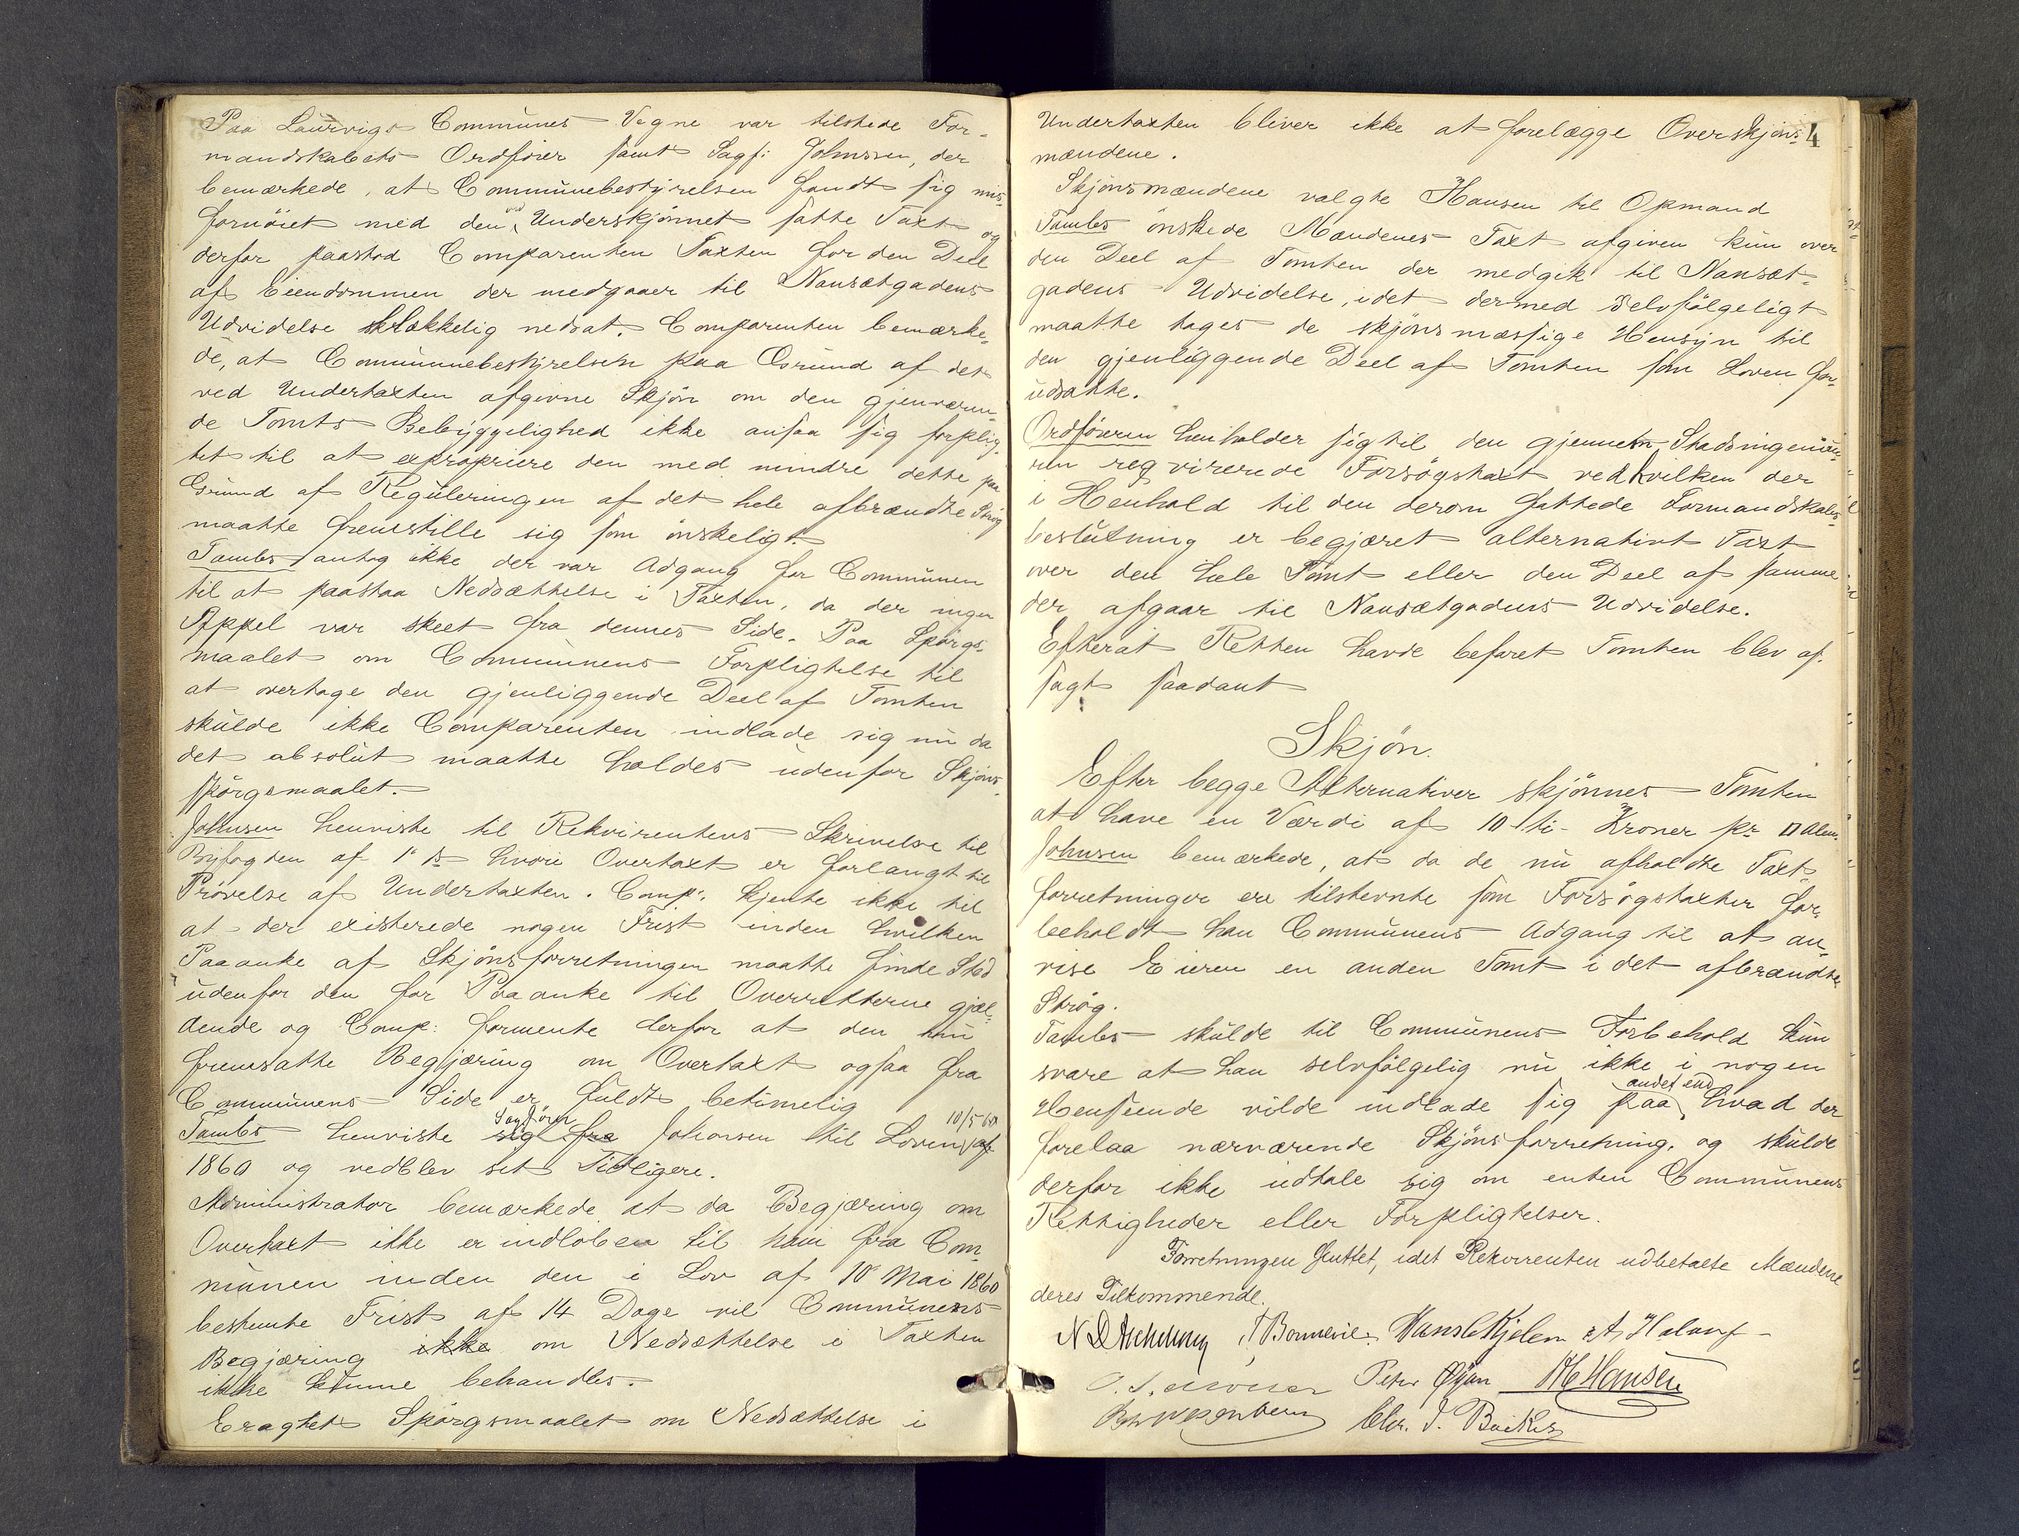 Paa Laurvigs Communes Vegne var tilstede For-
mandskabets Ordfører samt Sagf: Johnsen, der
bemærkede, at Communebestyrelsen fandt sig mis-
fornøiet med den ved Underskjønnet satte Taxt og
derfor paastod Comparenten Taxten for den Deel
af Eiendommen der medgaaer til Nansætgadens
Udvidelse skrækkelig nedsat. Comparenten bemærke-
de, at Communebestyrelsen paa Grund af det
ved Undertaxten afgivne Skjøn om den gjenværen-
de Tomts Bebyggelighed ikke ansaa sig forplig-
tet til at expropriere den med mindre dette paa
Grund af Reguleringen af det hele afbrændte Strøg
maatte fremstille sig som ønskeligt.
Tambs antog ikke der var Adgang for Communen
til at paastaa Nedsættelse i Taxten, da der ingen
Appel var skeet fra dennes Side. Paa Spørgs-
maalet om Communens Forpligtelse til
at overtage den gjenliggende Deel af Tomten
skulde ikke Comparenten indlade sig nu da
det absolut maatte holdes udenfor Skjøns-
spørgsmaalet.
Johnsen henviste til Rekvirentens Skrivelse til
Byfogden af 1ste ds hvori Overtaxt er forlangt til
Prøvelse af Undertaxten. Comp: kjente ikke til
at der existerede nogen Frist inden hvilken
Paaanke af Skjønsforretningen maatte finde Sted
udenfor den for Paaanke til Overretterne gjæl-
dende og Comp: formente derfor at den nu
fremsatte Begjæring om Overtaxt ogsaa fra
Communens Side er fuldt betimelig
Tambs henviste sig fra Sagfører Johnsen til Loven af 10/5 60
1860 og vedblev sit Tidligere.
Administrator bemærkede at da Begjæring om
Overtaxt ikke er indløben til ham fra Com-
munen inden den i Lov af 10 Mai 1860
bestemte Frist af 14 Dage vil Communens
Begjæring ikke om Nedsættelse i Taxten
ikke kunne behandles.
Eragtet Spørgsmaalet om Nedsættelse i
4
Undertaxten bliver ikke at forelægge Overskjøns-
mændene.
Skjønsmændene valgte Hansen til Opmand
Tambs ønskede Mændenes Taxt afgiven kun over
den Deel af Tomten der medgik til Nansæt-
gadens Udvidelse, idet dermed selvfølgeligt
maatte tages de skjønsmæssige Hensyn til
den gjenliggende Deel af Tomten som Loven for-
udsatte.
Ordføreren henholder sig til den gjennem Stadsingeniøe-
ren reqvirerede Forsøgstaxt ved hvilken der
i Henhold til den derom fattede Formandskabs-
beslutning er begjæret alternativt Taxt
over den hele Tomt eller den Deel af samme
der afgaar til Nansætgadens Udvidelse.
Efterat Retten havde befaret Tomten blev af-
sagt saadant
Skjøn.
Efter begge Alternativer skjønnes Tomten
at have en Værdi af 10 – ti – Kroner pr □ Alen.
Johnsen bemærkede, at da de nu afholdte Taxt-
forretninger ere tilstevnte som Forsøgstaxter for-
beholdt han Communens Adgang til at an-
vise Eieren en anden Tomt i det afbrændte
Strøg.
Tambs skulde til Communens Forbehold kun
svare at han selvfølgelig nu ikke i nogen
Henseende vilde indlade sig paa andet end hvad der
forelaa nærværende Skjønsforretning, og skulde
derfor ikke udtale sig om enten Communens
Rettigheder eller Forpligtelser.
Forretningen sluttet, idet Rekvirenten udbetalte Mændene
deres Tilkommende.
Peter Øjen H C Hansen
Chr. J. Backer